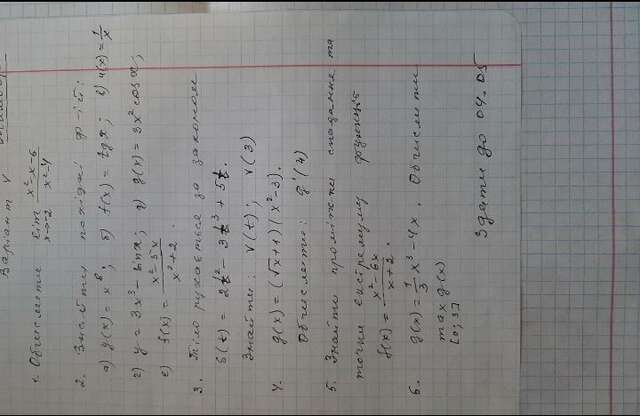 Варіант V
1. Обчислити lim x→-2 x²-x-6 / x²-4
2. Знайти похідні ф-ій:
а) y(x) = x⁸; б) f(x) = tg x; в) u(x) = 1/x
г) y = 3x³ - sin x; д) g(x) = 3x² cos x;
е) f(x) = x²-5x / x²+2.
3. Тіло рухається за законом
S(t) = 2t² - 3t³ + 5t.
Знайти: v(t); v(3)
4. g(x) = (√x+1)(x²-3).
Обчислити: g'(4)
5. Знайти проміжки спадання та
точки екстремуму функції
f(x) = x²-6x / x+2.
6. g(x) = 1/3 x³ - 4x. Обчислити
max g(x)
[0; 3]
Здати до 04.05